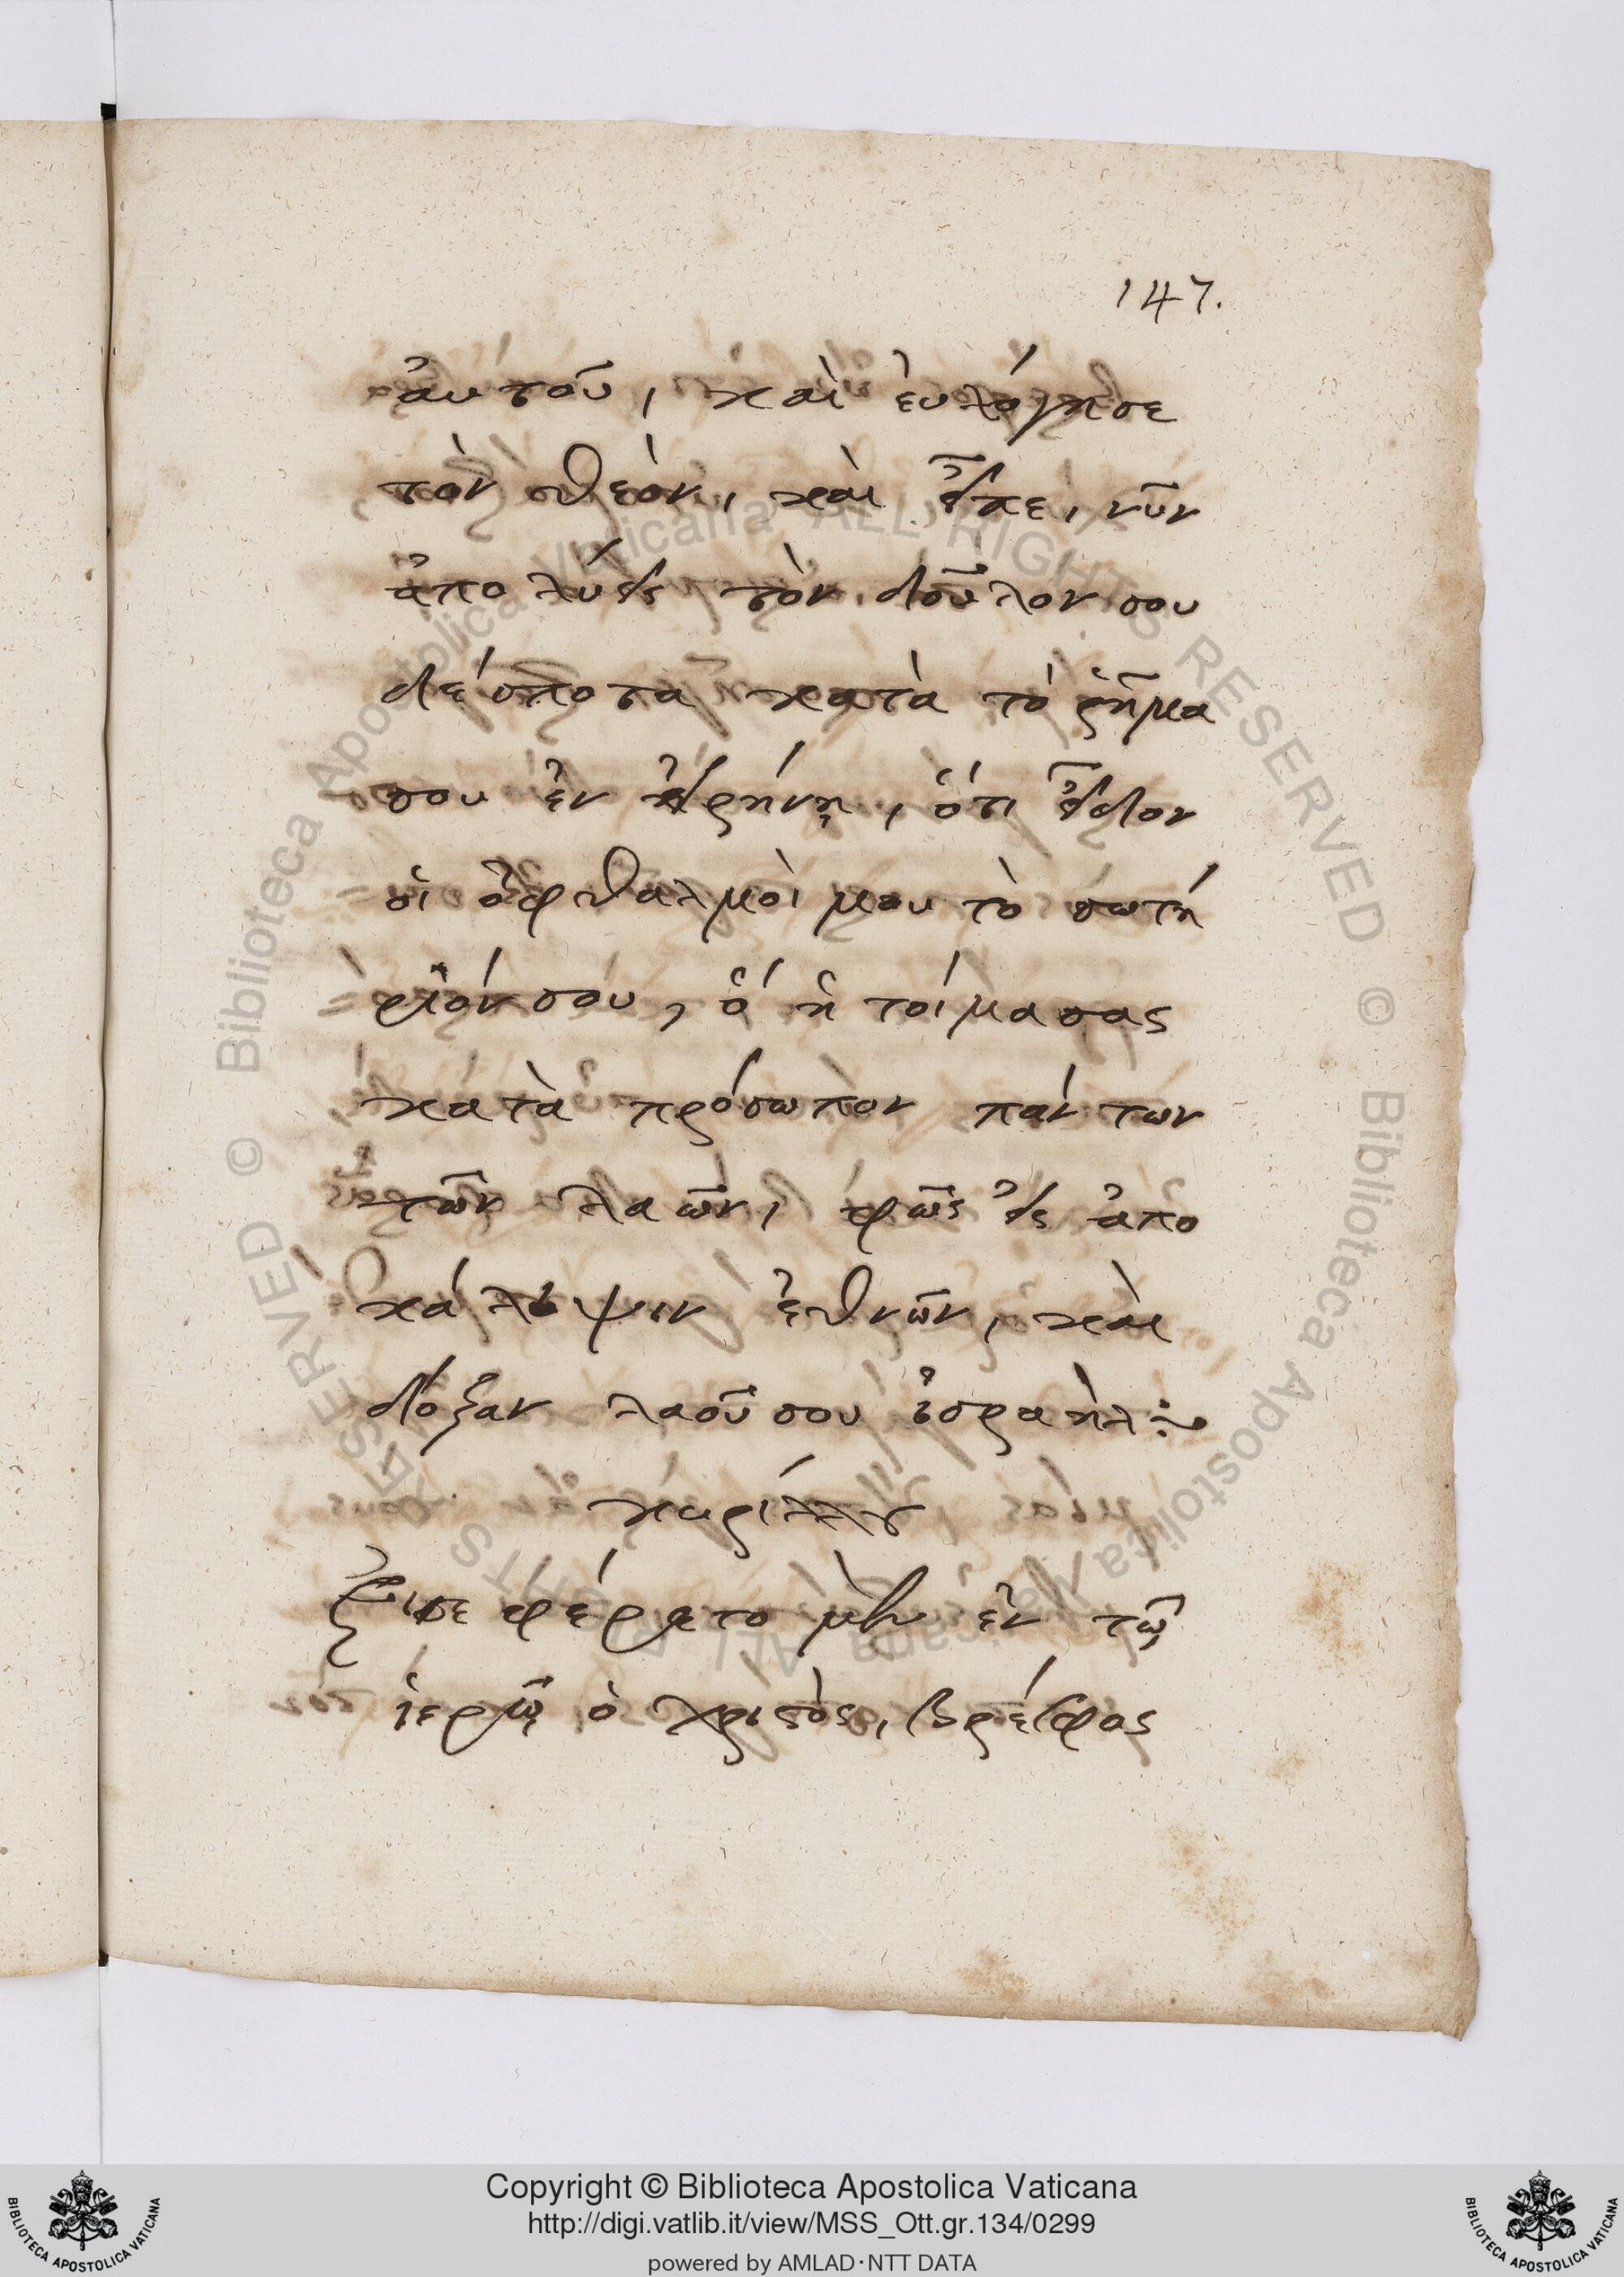 147.
ἀυτοῦ, καὶ ἐυλόγησε
τὸν θεὸν, καὶ εἶπε, νῦν
ἀπολύεις τὸν δοῦλον σου
δέσποτα κατὰ τὸ ῥῆμα
σου ἐν εἰρήνῃ, ὅτι εἶδον
οἱ ὀφθαλμοὶ μου τὸ σωτή
ριόν σου, ὅ ἡτοίμασας
κατὰ πρόσωπον πάντων
τῶν λαῶν, φῶς εἰς ἀπο
κάλυψιν ἐθνῶν, καὶ
δόξαν λαοῦ σου ἰσραὴλ:~
κυρίλλου
Ἐισεφέρετο μὲν ἐν τῶ
ἱερῷ ὁ χριστὸς, βρέφος
Copyright © Biblioteca Apostolica Vaticana
http://digi.vatlib.it/view/MSS_Ott.gr.134/0299
powered by AMLAD·NTT DATA
BIBLIOTECA APOSTOLICA VATICANA
BIBLIOTECA APOSTOLICA VATICANA
© Biblioteca Apostolica Vaticana ALL RIGHTS RESERVED
© Biblioteca Apostolica Vaticana ALL RIGHTS RESERVED